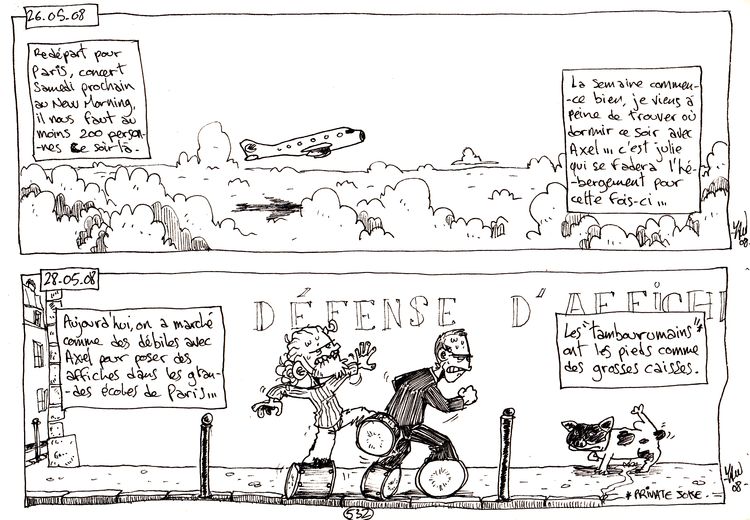 26.05.08
Redépart pour
Paris, concert
Samedi prochain
au New Morning,
il nous faut au
moins 200 person-
-nes ce soir là.
La semaine commen-
-ce bien, je viens à
peine de trouver où
dormir ce soir avec
Axel... c'est julie
qui se fadera l'hé-
-bergement pour
cette fois-ci...
08
28.05.08
DÉFENSE D'AFFICH
Aujourd'hui, on a marché
comme des débiles avec
Axel pour poser des
affiches dans les gran-
-des écoles de Paris...
Les "tambourumains"*
ont les pieds comme
des grosses caisses.
08
* PRIVATE JOKE.
532